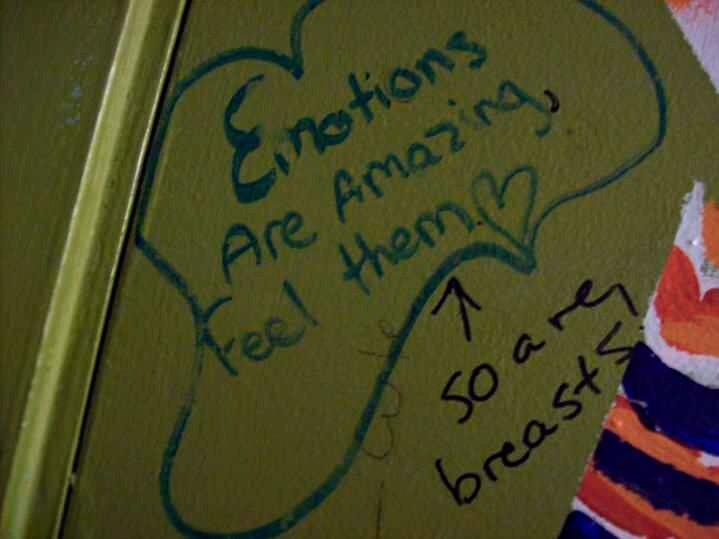 Emotions
Are Amazing,
Feel them
so are
breasts